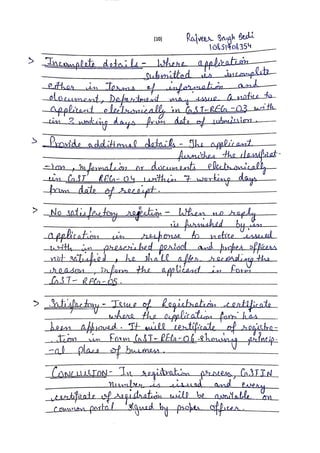 (10) Rajveer Singh Bedi
10651401354
> Incomplete details - Where application
submitted is incomplete
either in Terms of information and
document, Department may issue a notice to
applicant electronically in GST-REG-03 with
in 3 working days from date of submission.
> Provide additional details - The applicant
furnishes the classificat
-ion, information or documents electronically
in GST REG-04 within 7 working days
from date of receipt.
> No satisfactory rejection - When no reply
is furnished by in
application in response to notice issued
with in prescribed period and proper officers
not satisfied, he shall after recording the
reason, inform the applicant in Form
GST-REG-05.
> Satisfactory - Issue of Registration certificate
where the application form has
been approved. It will certificate of registra-
tion in Form GST-REG-06 showing princip-
-al place of business.
CONCLUSION - In registration process, GSTIN
number is issued and every
certificate of registration will be available on
common portal signed by proper officer.